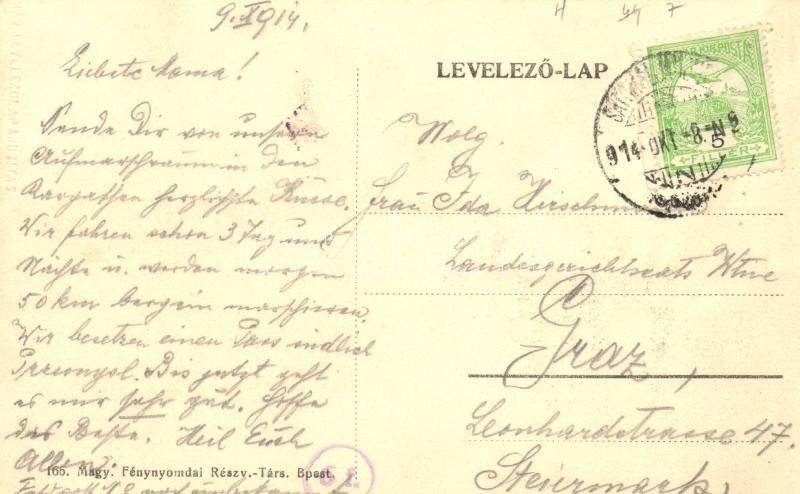 9. X. 1914.
Liebste Mama!
Sende Dir von unserem
Aufmarschraum in den
Karpathen herzlichste Küsse.
Wir fahren schon 3 Tag und
Nächte u. werden morgen
50 km bergein marschieren.
Wir besetzen einen Pass südlich
Przemysl. Bis jetzt geht
es mir sehr gut. Hoffe
das Beste. Heil Euch
Allen.
165. Magy. Fénynyomdai Részv.-Társ. Bpest.
LEVELEZŐ-LAP
914 OKT -8 N 8
5
FILLÉR
Wolg.
Frau Ida Hirschm
Landesgerichtsrats Wtwe
Graz,
Leonhardstrasse 47.
Steiermark